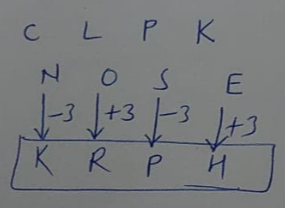 C L P K
N O S E
-3 +3 -3 +3
K R P H